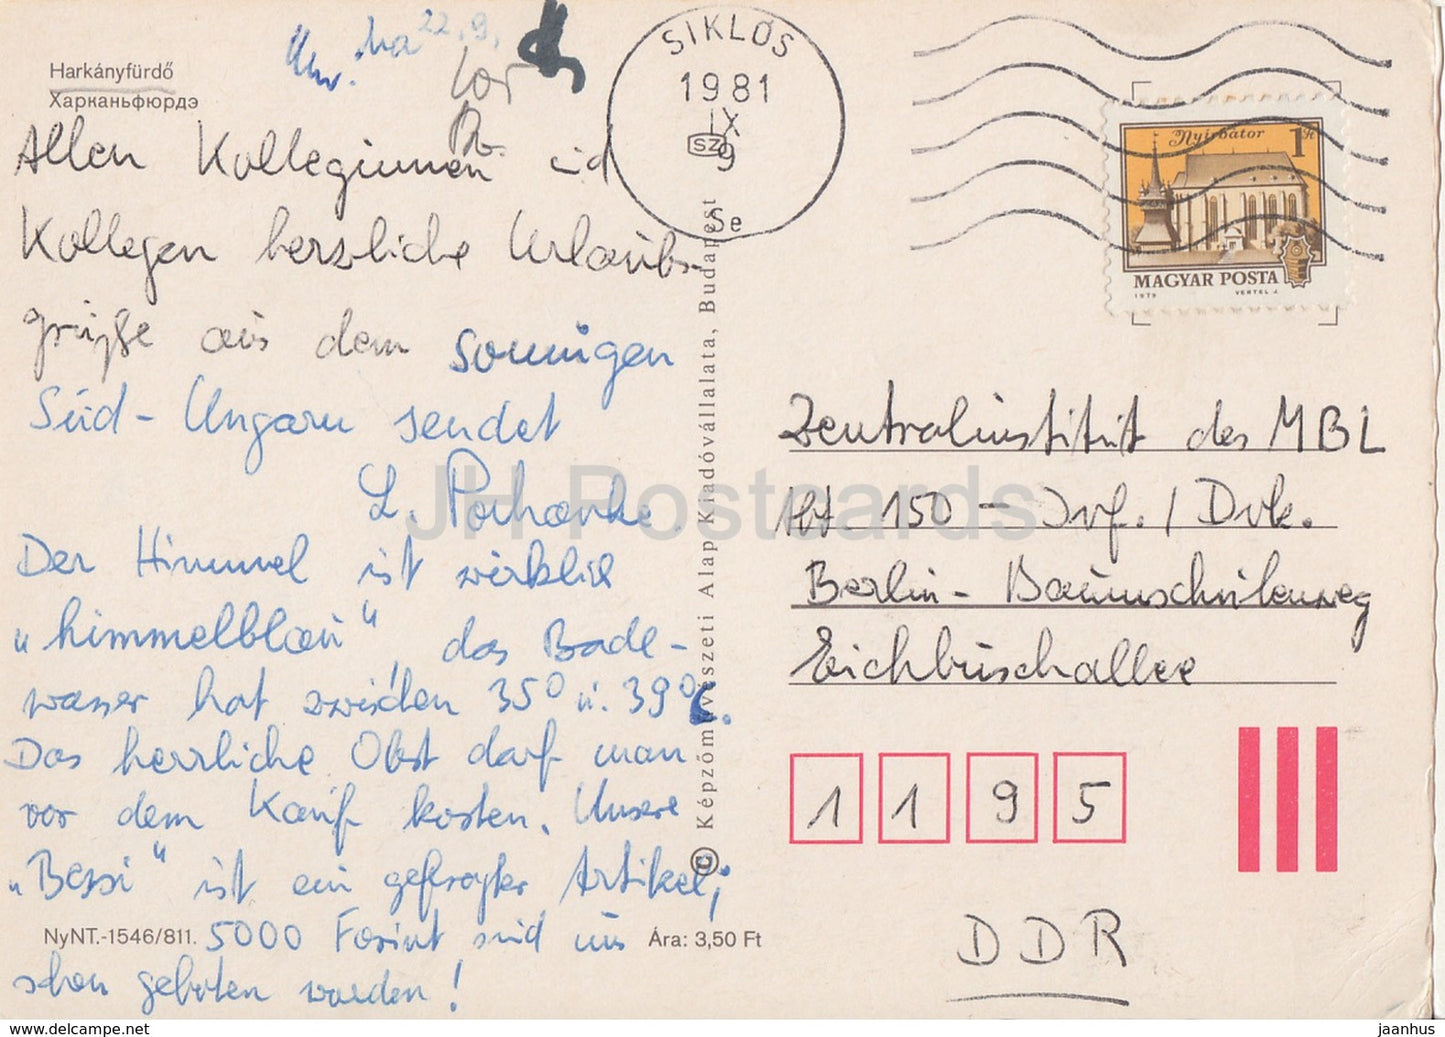 Harkányfürdő
Харканьфюрдэ
22.9.
SIKLÓS
1981
IX
SZ
9
Se
Nyírbátor
1 Ft
MAGYAR POSTA
1979 VERTEL J.
Allen Kolleginnen und
Kollegen herzliche Urlaubs-
grüße aus dem sonnigen
Süd-Ungarn sendet
L. Pohanke
Der Himmel ist wirklich
„himmelblau“, das Bade-
wasser hat zwischen 35° u. 39°C.
Das herrliche Obst darf man
vor dem Kauf kosten. Unsere
„Bessi“ ist ein gefragter Artikel;
5000 Forint sind uns
schon geboten worden!
NyNT.-1546/811.
Ára: 3,50 Ft
© Képzőművészeti Alap Kiadóvállalata, Budapest
Zentralinstitut des MBL
Abt. 150 - Inf. / Dok.
Berlin-Baumschulenweg
Eichbuschallee
1 1 9 5
DDR
JH Postcards
www.delcampe.net
jaanhus